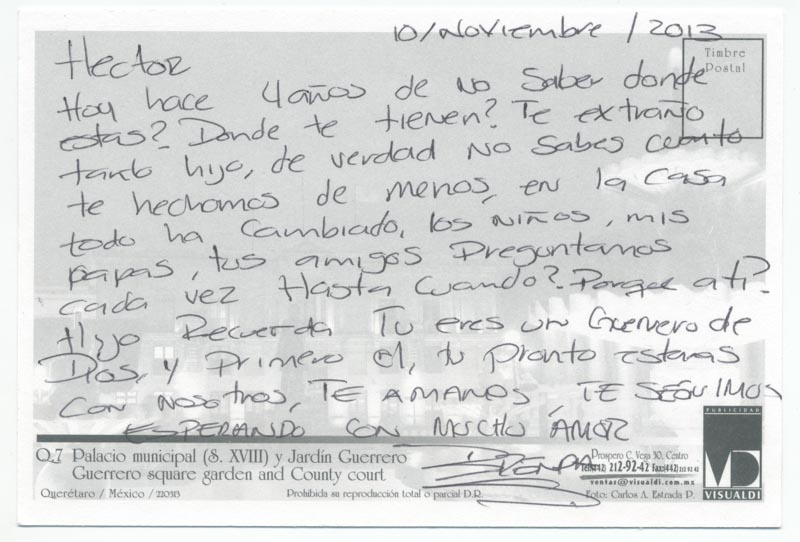 10/Noviembre/2013
Timbre
Postal
Hector
Hoy hace 4 años de no saber donde
estas? Donde te tienen? Te extraño
tanto hijo, de verdad no sabes cuanto
te hechamos de menos, en la casa
todo ha cambiado, los niños, mis
papas, tus amigos preguntamos
cada vez Hasta cuando? Porque a ti?
Hijo Recuerda Tu eres un Guerrero de
Dios, y Primero el, tu pronto estaras
con nosotros, TE AMAMOS, TE SEGUIMOS
ESPERANDO CON MUCHO AMOR
BRENDA
Q.7 Palacio municipal (S. XVIII) y Jardín Guerrero
Guerrero square garden and County court
Querétaro / México / 220313
Prohibida su reproducción total o parcial D.R.
Prospero C. Vega 30, Centro
Tels(442) 212-92-42 Fax(442)212 92 42
ventas@visualdi.com.mx
Foto: Carlos A. Estrada P.
PUBLICIDAD
VD
VISUALDI